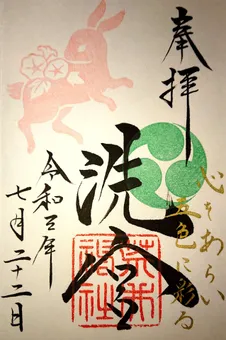 奉拝
心をあらい
五色に彩る
洗
荒井
神社
令和五年
七月二十二日